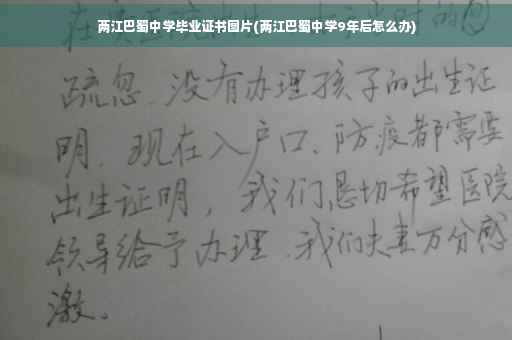 两江巴蜀中学毕业证书图片(两江巴蜀中学9年后怎么办)
疏忽、没有办理孩子的出生证
明、现在入户口、防疫都需要
出生证明，我们恳切希望医院
领导给予办理、我们夫妻万分感
激。